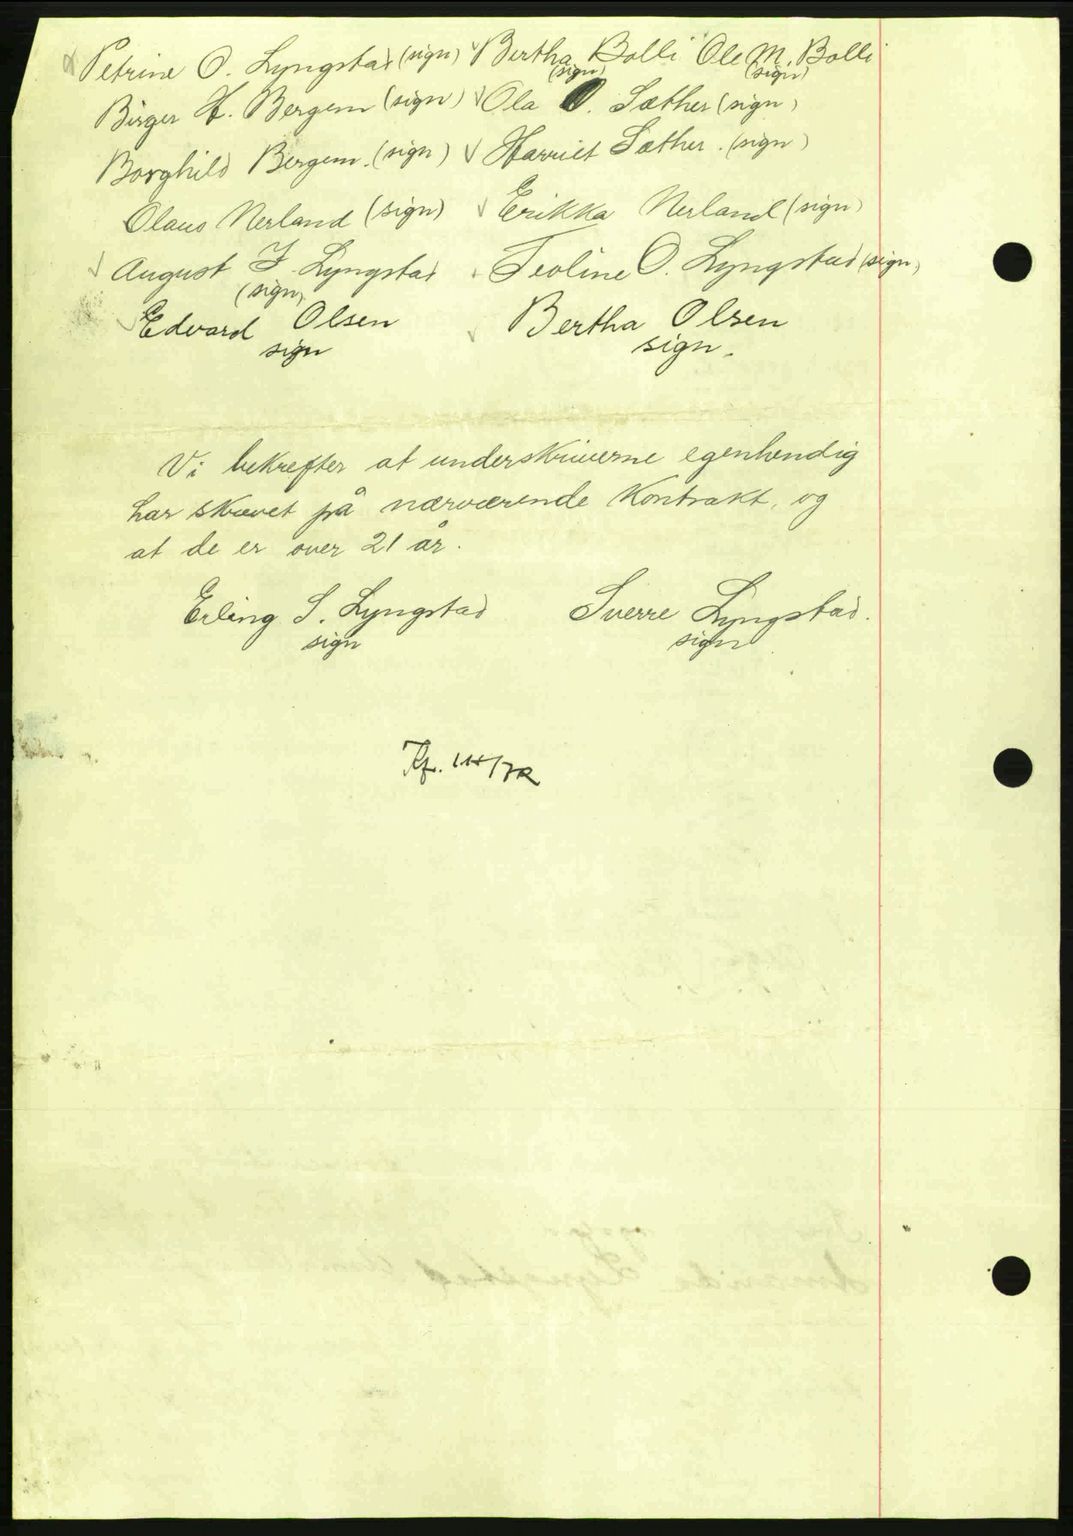 Petrine O. Lyngstad (sign) Bertha Bolli Ole M. Bolli
(sign) (sign)
Birger H. Bergem (sign) Ola O. Sæther (sign)
Borghild Bergem. (sign) Harriet Sæther. (sign)
Olaus Nerland (sign) Erikka Nerland (sign)
August I Lyngstad Teoline O. Lyngstad (sign)
(sign)
Edvard Olsen Bertha Olsen
sign sign.
Vi bekrefter at underskriverne egenhendig
har skrevet på nærværende Kontrakt, og
at de er over 21 år.
Erling S. Lyngstad Sverre Lyngstad.
sign sign